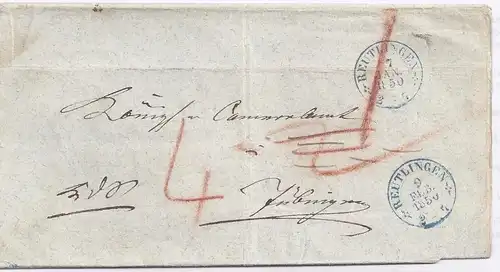 REUTLINGEN
7
JAN.
1850
Königl Cameralamt
4
Tübingen
REUTLINGEN
9
FEB.
1850